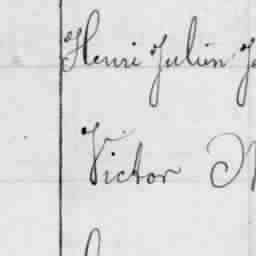 Henri Julien
Victor